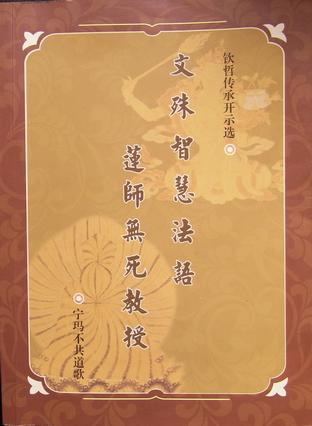 钦哲传承开示选
文殊智慧法語
蓮師無死教授
宁玛不共道歌